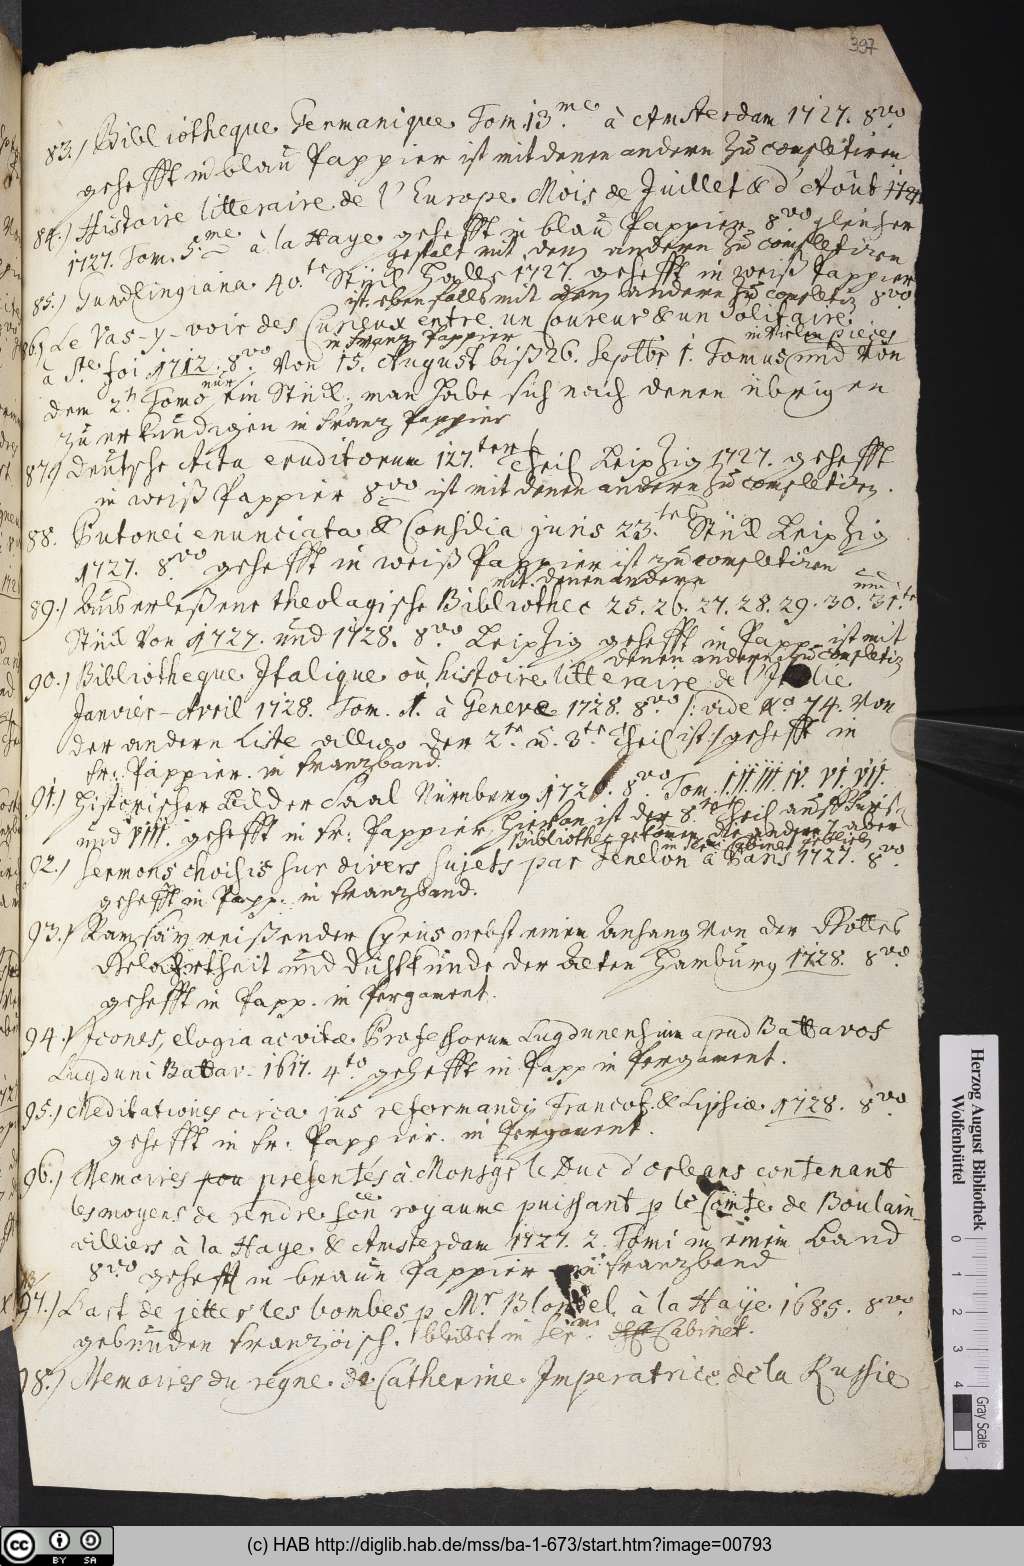 397
83.) Bibliotheque Germanique Tom. 13.me à Amsterdam 1727. 8vo.
gehefft in blau Pappier ist mit denen andern zu completiren
84.) Histoire litteraire de l'Europe Mois de Juillet & d'Août
1727. Tom. 5.me à la Haye gehefft in blau Pappier 8vo gleicher
gestalt mit dem andern zu completiren
85.) Gundlingiana 40.te Stück Halle 1727. gehefft in weiß Pappier
ist ebenfalls mit dem andern zu completir. 8vo
86.) Le Vas-y-voir des Curieux entre un Coureur & un Solitaire
in Franz Pappier in vielen Pieces
à Ste. foi 1712. 8vo. Von 15. August biß 26. Septbr 1. Tomus und von
dem 2.tn Tomo nur ein Stück, man habe sich nach denen übrigen
zu erkundigen in Franz Pappier
87.) Deutsche Acta eruditorum 127.ter Theil Leipzig 1727. gehefft
in weiß Pappier 8vo ist mit denen andern zu completiren.
88. Putonei enunciata & Consilia juris 23.tes Stück Leipzig
1727. 8.vo gehefft in weiß Pappier ist zu completiren
mit denen andern
89.) Auserleßene theologische Bibliothec 25. 26. 27. 28. 29. 30. und 31.te
Stück von 1727. und 1728. 8vo Leipzig gehefft in Papp. ist mit
denen andern zu completir.
90.) Bibliotheque Italique où histoire litteraire de l'Italie
Janvier-Avril 1728. Tom. 1. à Geneve 1728. 8vo /: vide No. 74. von
der andern Liste allwo der 2.te u. 3.te Theil ist :/ gehefft in
fr: Pappier. in Franzband.
91.) Historischer Bilder Saal Nürnberg 172. 8vo. Tom. I. II. III. IV. VI. VII.
und VIII. gehefft in fr: Pappier hievon ist der 8.te Theil auf Fürstl.
Bibliothec gekommen die andern 7 aber
in Cabinet geblieben
92.) Sermons choisis sur divers sujets par Fenelon à Paris 1727. 8vo.
gehefft in Papp. in Franzband.
93.) Ramsay reißender Cyrus nebst einem Anhang von der Gottes
Gelahrtheit und Dichtkunde der Alten Hamburg 1728. 8vo.
gehefft in Papp. in Pergament.
94.) Icones, elogia ac vitæ Professorum Lugdunensium apud Battavos
Lugduni Battav. 1617. 4.to gehefft in Papp in Pergament.
95.) Meditationes circa jus reformandi Francof. & Lipsiæ 1728. 8vo.
gehefft in fr: Pappier. in Pergament.
96.) Memoires pou presentés à Monsgr le Duc d'Orleans contenant
les moyens de rendre son royaume puissant p le Comte de Boulain-
villiers à la Haye & Amsterdam 1727. 2. Tomi in einem Band
8vo gehefft in braun Pappier in Franzband
97.) L'art de jetter les bombes p Mr. Blondel à la Haÿe 1685. 8vo.
gebunden Französisch. bleibet in Cabinet.
98.) Memoires du regne de Catherine Imperatrice de la Russie
Herzog August Bibliothek
Wolfenbüttel
0 1 2 3 4
Gray Scale
cc BY SA
(c) HAB http://diglib.hab.de/mss/ba-1-673/start.htm?image=00793